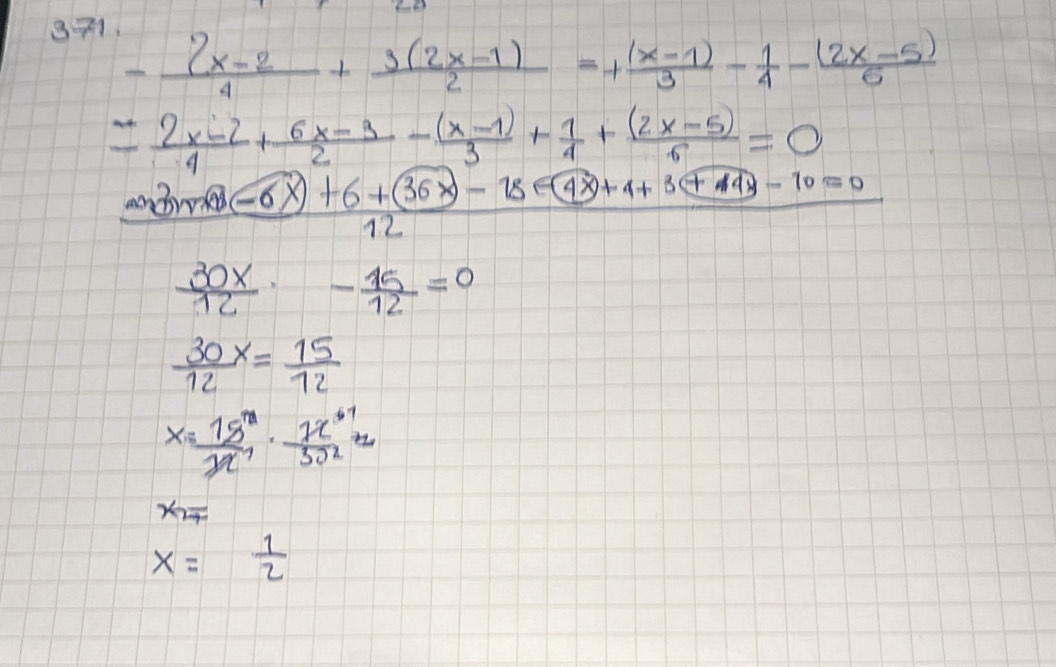 371.
- 2x-2/4 + 3(2x-1)/2 = + (x-1)/3 - 1/4 - (2x-5)/6
= 2x-2/4 + 6x-3/2 - (x-1)/3 + 1/4 + (2x-5)/6 = 0
-6x + 6 + 36x - 18 - 4x + 4 + 3 + 4x - 10 = 0 / 12
30x/12 - 15/12 = 0
30x/12 = 15/12
x = 15/12 · 12/30 =
x =
x = 1/2